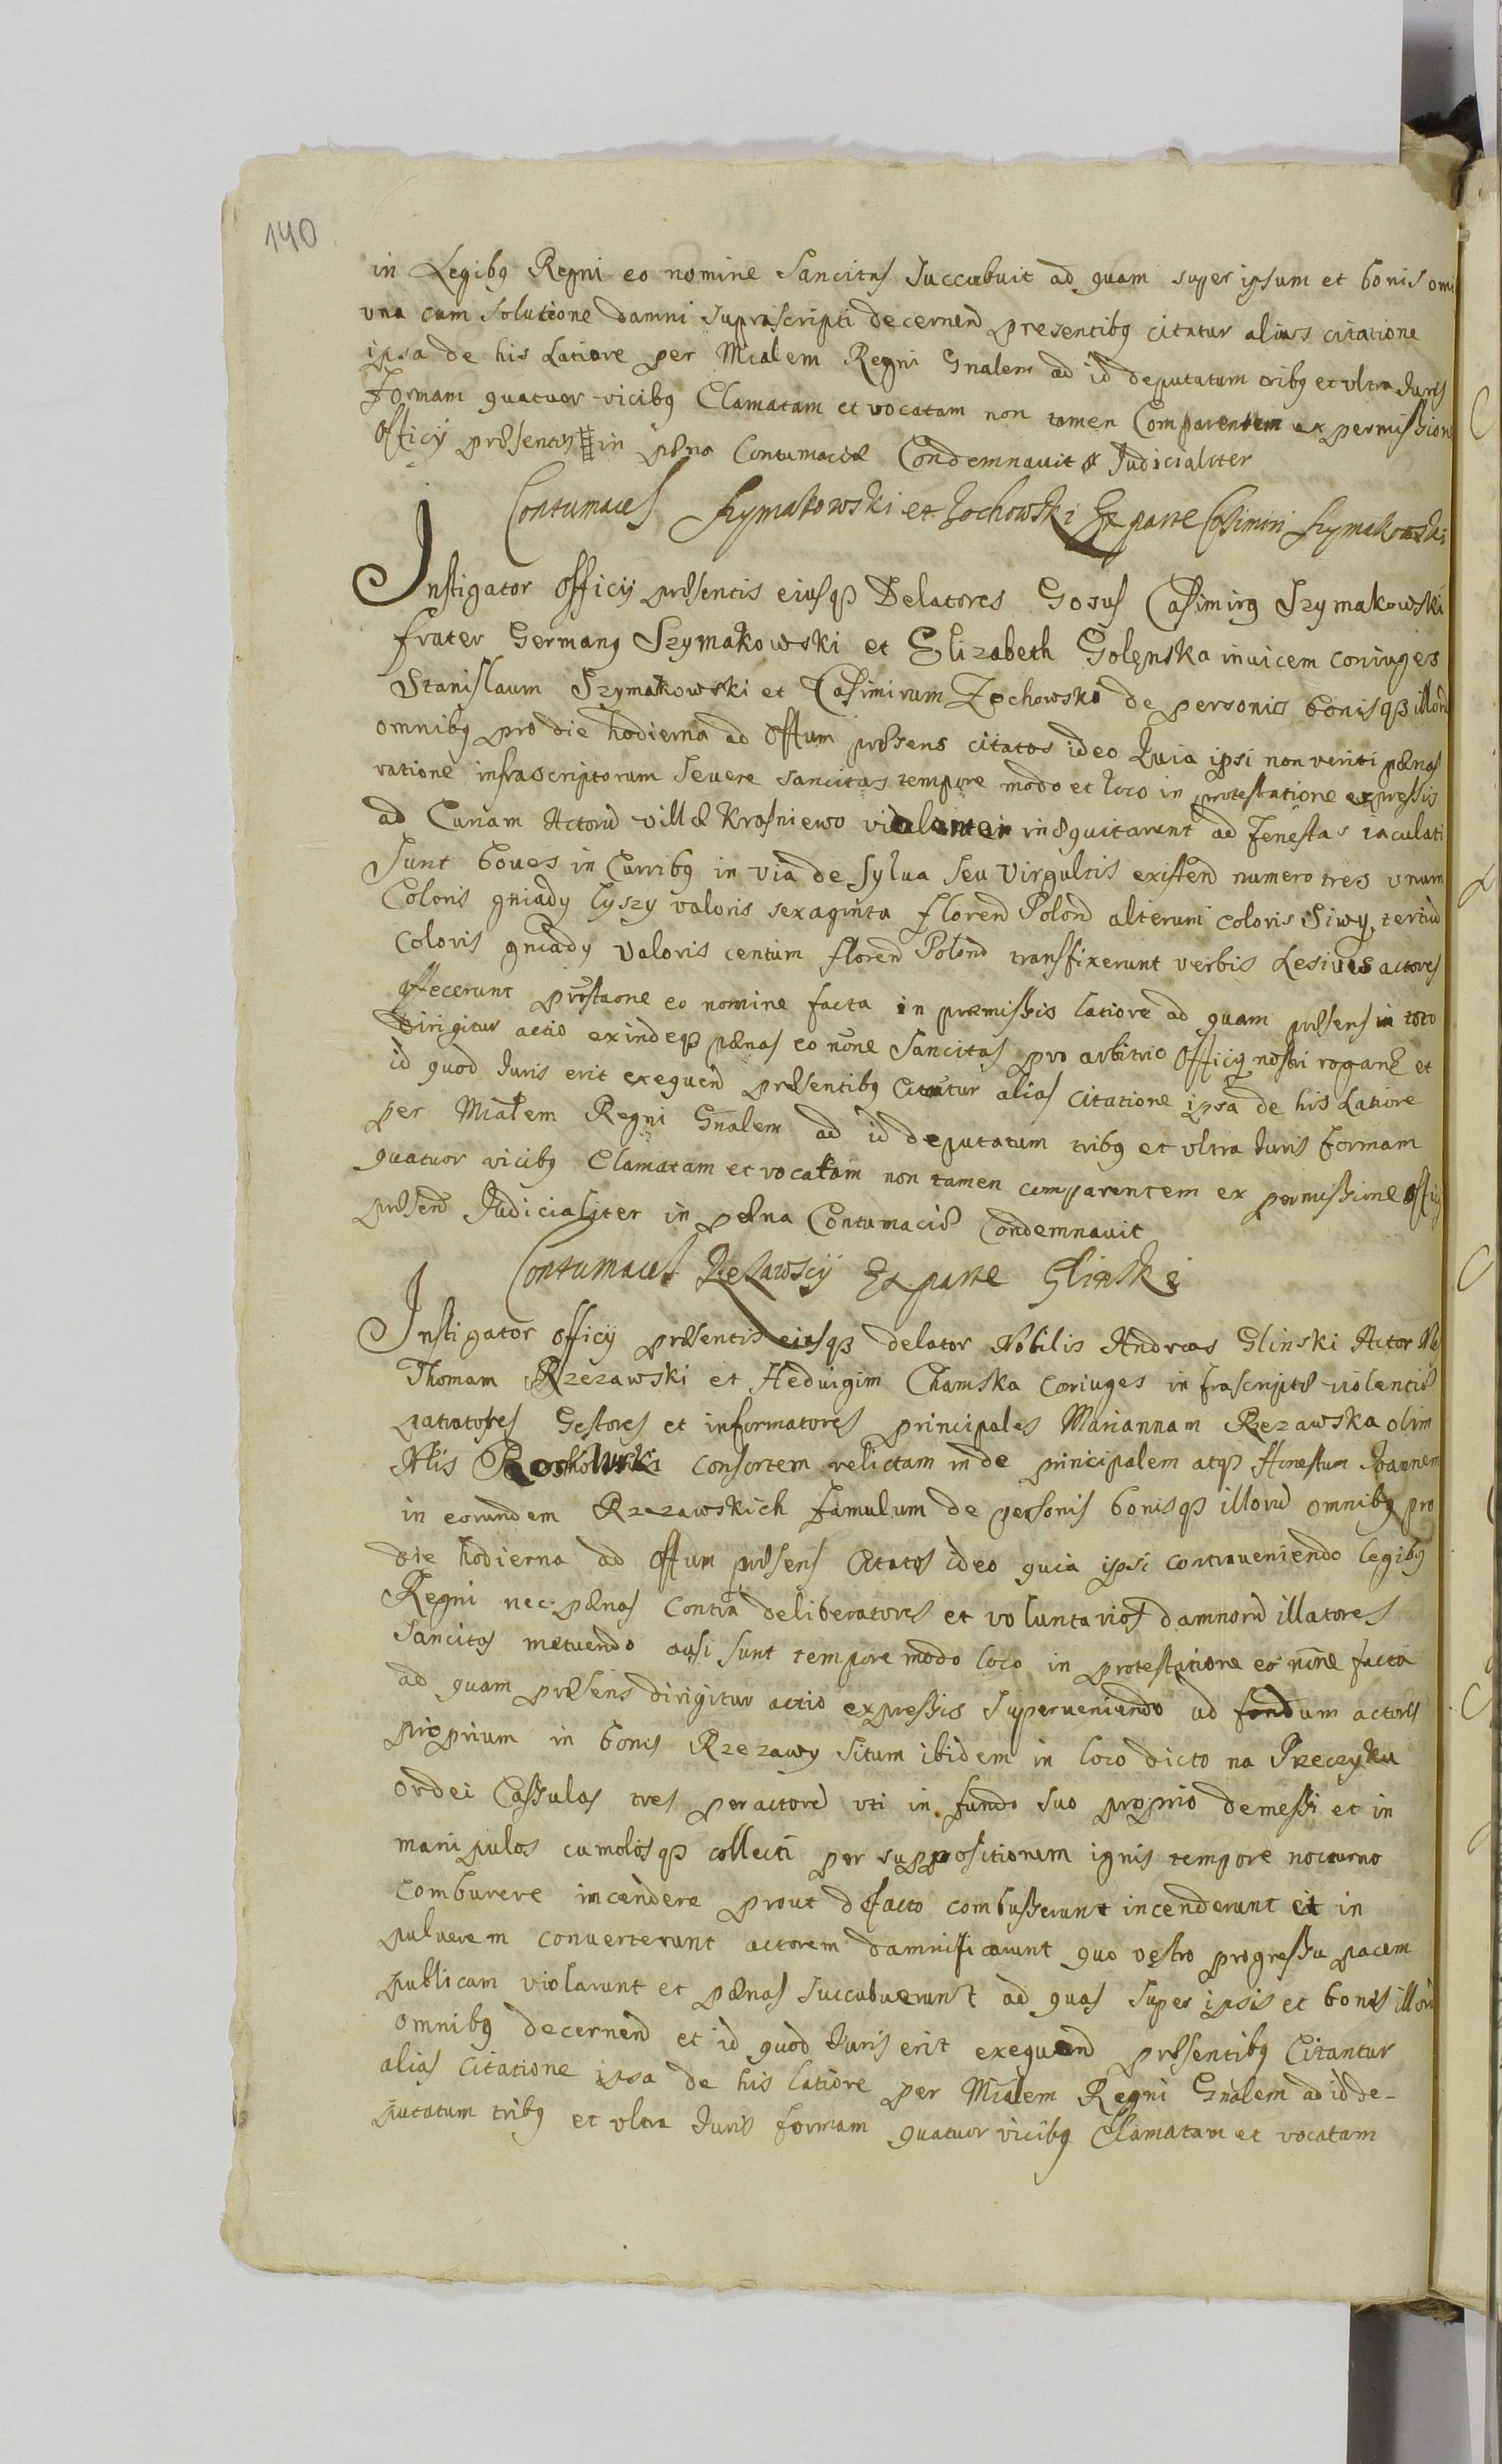 140
in Legibq Regni eo nomine Sancitas Succubuit ad quam super ipsum et bonis omi
vna cum Solutione damni Suprascripti decernend presentibq citatur alias citatione
ipsa de his Latiore per Mialem Regni Gnalem ad id deputatum tribq et vltra Juris
Formam quatuor vicibq Clamatam et vocatam non tamen Comparentem ex permission
Officij præsentis in pæna Contumaciæ Condemnauit Judicialiter
Contumaces Szymakowski et Zochowski Ex parte Casimiri Szymakowski
Instigator Officij præsentis eiusqз Delatores Gosus Casimirq Szymakowski
frater Germanq Szymakowski et Elizabeth Golęnska inuicem coniuges
Stanislaum Szymakowski et Casimirum Zochowski de personis bonisqз illord
omnibq pro die hodierna ad Offum præsens citatos ideo Quia ipsi non veriti pænas
ratione infrascriptorum Seuere sancitas tempore modo et loco in protestatione expressis
ad Curiam Actord villæ Krasniewo violenter inæquitarunt ad Fenestas iaculati
Sunt boues in Curribq in via de Sylua Seu Virgultis existend numero tres vnum
Coloris gniady lyszy valoris sexaginta florend Polond alterum coloris Siwy tertiud
Coloris gniady Valoris centum florend Polond transfixerunt verbis Lesiuis actores
affecerunt prõstaone eo nomine facta in præmissis latiore ad quam præsens in toto
dirigitur actio exindeqз pænas eo nõne Sancitas pro arbitrio Officij nostri rogand et
id quod Juris erit exequend præsentibq Citatur alias citatione ipsa de his Latiore
per Mialem Regni Gñalem ad id deputatum tribq et vltra Juris Formam
quatuor vicibq Clamatam et vocatam non tamen comparentem ex permissione Offij
præsend Judicialiter in pæna Contumaciæ Condemnauit
Contumaces Rzezawscij Ex parte Glinski
Instigator officij præsentis eiusqз delator Nobilis Andreas Glinski Actor Nb
Thomam Rzezawski et Heduigim Chamska Coniuges infrascriptæ violentiæ
patratores Gestores et informatores principales Mariannam Rzezawska olim
Nlis consortem relictam inde principalem atqз Honestum Joannem
in eorundem Rzezawskich Famulum de personis bonisqз illord omnibq pro
die hodierna ad Offum præsens Citatos ideo quia ipsi contraueniendo legibq
Regni nec pænas Contra deliberatores et voluntarios damnord illatores
Sancitas metuendo ausi sunt tempore modo loco in protestatione eo nõne facta
ad quam præsens dirigitur actio expressis Superueniendo ad fondum actoris
proprium in bonis Rzezawy Situm ibidem in loco dicto na Przeczyku
ordei Cassulas tres per actored vti in fundo suo proprio demessi et in
manipulos cumolosqз collecti per suppositionem ignis tempore nocturno
comburere incendere prout defacto combusserunt incenderunt et in
puluerem conuerterunt actorem damnificarunt quo vestro progressu pacem
publicam violarunt et pænas Succubuerunt ad quas super ipsis et bonis illord
omnibq decernend et id quod Juris erit exequend præsentibq Citantur
alias citatione ipsa de his latiore per Mialem Regni Gñalem ad id de-
putatum tribq et vltra Juris formam quatuor vicibq Clamatam et vocatam